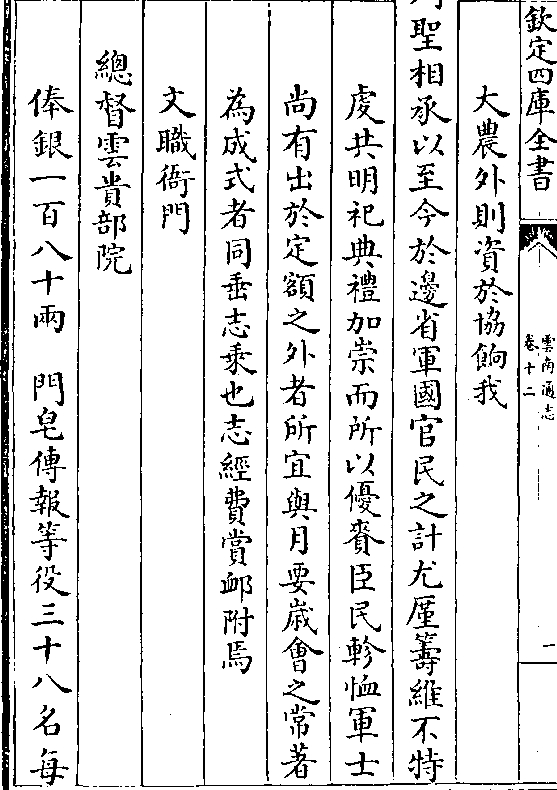 欽定四庫全書
雲南通志
卷十二
一
大農外則資於協餉我
聖相承以至今於邊省軍國官民之計尤廑籌維不特
虔共明祀典禮加崇而所以優賚臣民軫恤軍士
尚有出於定額之外者所宜與月要嵗會之常著
為成式者同垂志乘也志經費賞䘏附焉
文職衙門
總督雲貴部院
俸銀一百八十兩　門皂傳報等役三十八名每